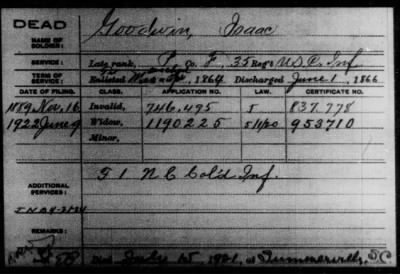 DEAD
Goodwin, Isaac
NAME OF SOLDIER:
SERVICE: Late rank, P, Co. F, 35 Reg't U.S.C. Inf
TERM OF SERVICE: Enlisted 1864 Discharged June 1, 1866
DATE OF FILING. CLASS. APPLICATION NO. LAW. CERTIFICATE NO.
1889 Nov. 16 Invalid, 746.495 837.778
1922 June 9 Widow, 1190225 5/1/20 953710
Minor,
F 1 N C Col'd Inf.
ADDITIONAL SERVICES:
REMARKS:
Died July 15 1921, at Summerville, SC